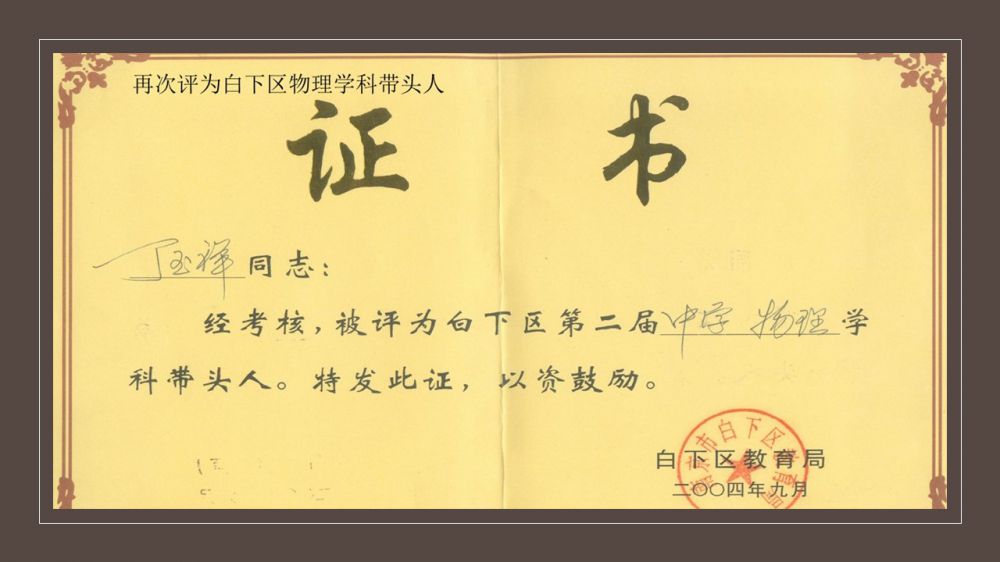 再次评为白下区物理学科带头人
证 书
丁玉祥同志：
经考核，被评为白下区第二届中学 物理学
科带头人。特发此证，以资鼓励。
南京市白下区教育局
白下区教育局
二〇〇四年九月